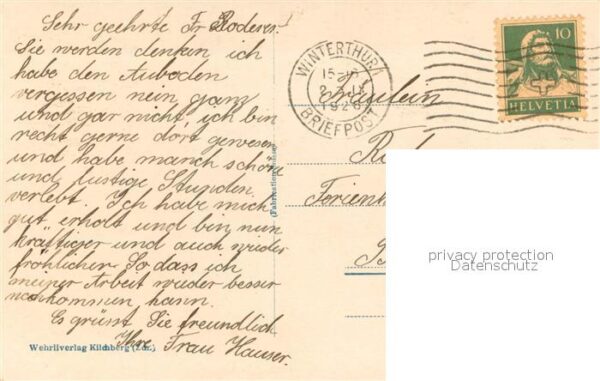 Sehr geehrte Fr Roderer.
Sie werden denken ich
habe den Auboden
vergessen nein ganz
und gar nicht, ich bin
recht gerne dort gewesen
und habe manch schöne
und lustige Stunden
verlebt. Ich habe mich
gut erholt und bin nun
kräftiger und auch wieder
fröhlicher. So dass ich
meiner Arbeit wieder besser
nachkommen kann.
Es grüsst Sie freundlich
Ihre Frau Hauser.
Wehrliverlag Kilchberg (Zch.)
(Fabrication Suisse)
WINTERTHUR 1
BRIEFPOST
10
HELVETIA
Fräulein
Ferienh
privacy protection
Datenschutz